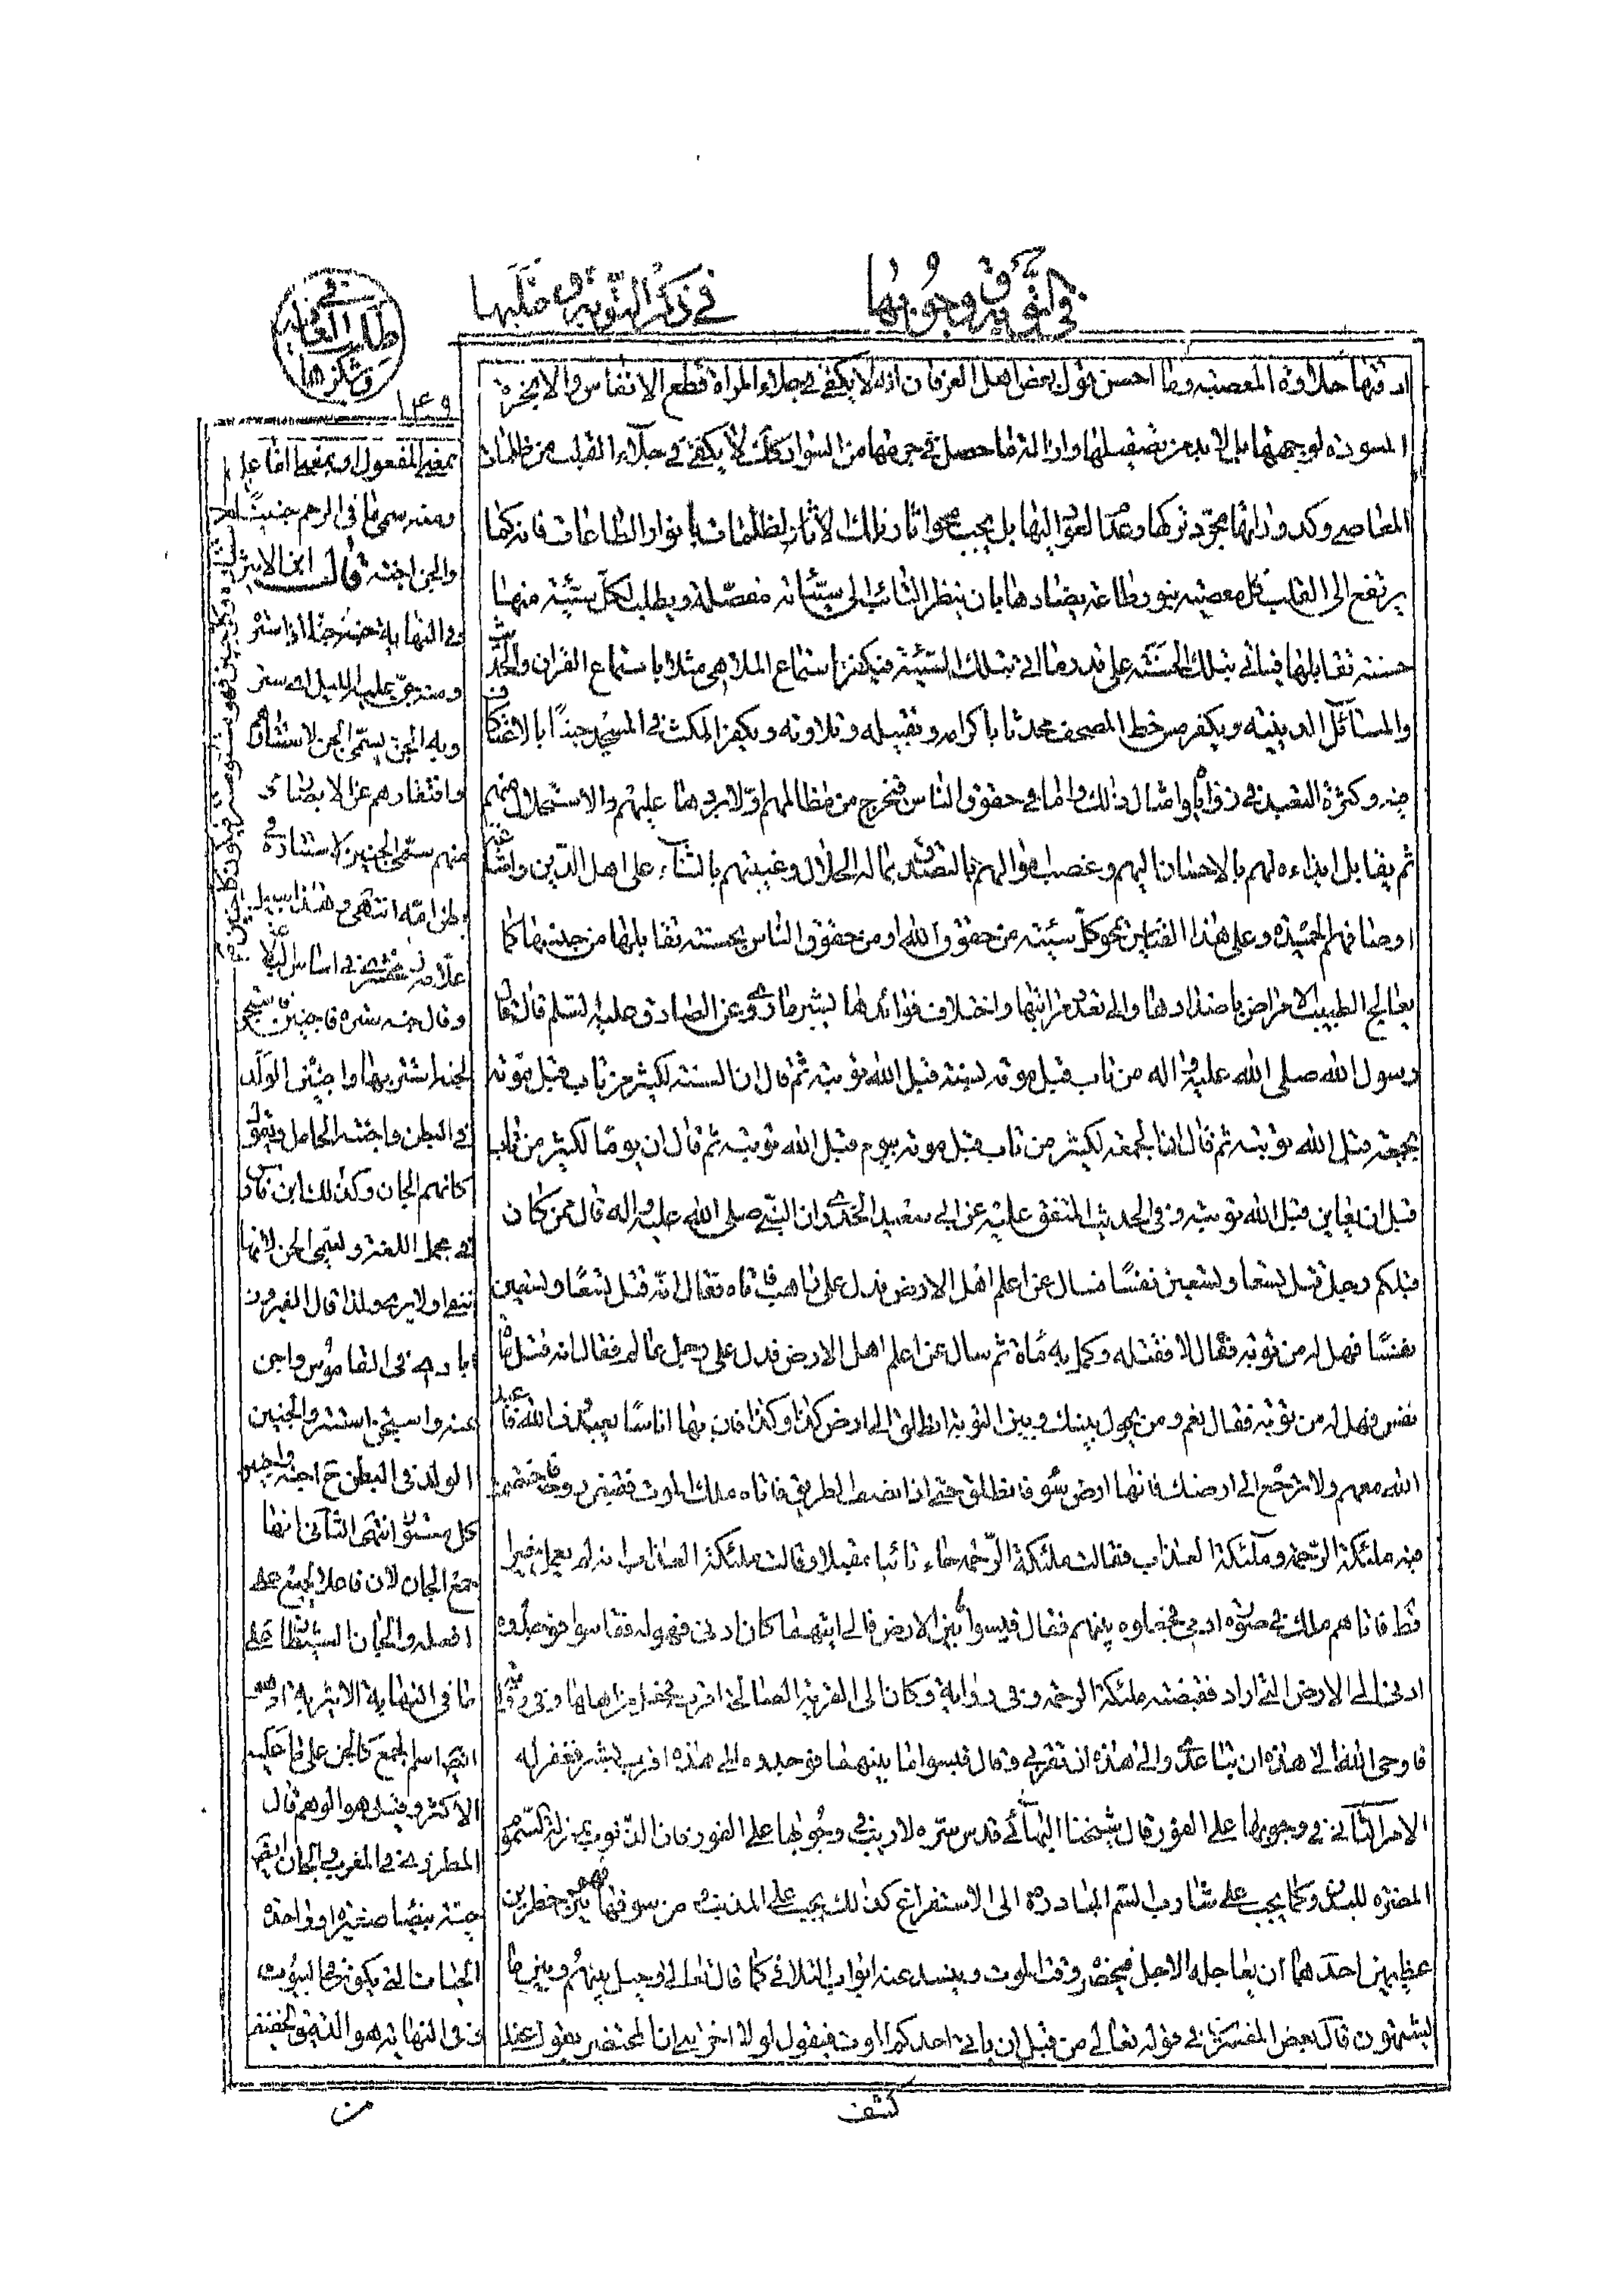 في التوبة وفي وجوبها
في ذكر التوبة وفي مثلبها
في طلب العافية وشكرها
١٤٩
اذقتها حلاوة المعصية وما احسن قول بعض اهل العرفان انه لا يكفي في جلاء المراة قطع الانفاس والابخرة
المسودة لوجهها بل لابد من تصقيلها وازالة ما حصل في جرمها من السواد كذلك لا يكفي في جلاء القلب من ظلمات
المعاصي وكدوراتها مجرد تركها وعدم العود اليها بل يجب محو اثار تلك الاثار الظلمات بانوار الطاعات فانه كما
يرتفع الى القلب من كل معصية نور طاعة يضادها بان ينظر التائب الى سيئاته مفصلة ويطلب لكل سيئة منها
حسنة تقابلها فياتي بتلك الحسنة على قدر ما اتى بتلك السيئة فيكفر استماع الملاهي مثلا باستماع القران والحديث
والمسائل الدينية ويكفر مس خط المصحف محدثا باكرامه وتقبيله وتلاوته ويكفر المكث في المسجد جنبا بالاعتكاف
فيه وكثرة التعبد في زواياه وامثال ذلك واما في حقوق الناس فيخرج من مظالمهم اولا بردها عليهم والاستحلال منهم
ثم يقابل ايذاءه لهم بالاحسان اليهم وغصب اموالهم بالتصدق بماله الحلال وغيبتهم بالثناء على اهل الدين واشاعة
اوصافهم الحميدة وعلى هذا القياس يمحو كل سيئة من حقوق الله او من حقوق الناس بحسنة تقابلها من جنسها كما
يعالج الطبيب الامراض باضدادها والى تعدد مراتبها واختلاف فوائدها يشير ما روي عن الصادق عليه السلم قال قال
رسول الله صلى الله عليه واله من تاب قبل موته بسنة قبل الله توبته ثم قال ان السنة لكثير من تاب قبل موته
بجمعة قبل الله توبته ثم قال ان الجمعة لكثير من تاب قبل موته بيوم قبل الله توبته ثم قال ان يوما لكثير من تاب
قبل ان يعاين قبل الله توبته وفي الحديث المتفق عليه عن ابي سعيد الخدري ان النبي صلى الله عليه واله قال فمن كان
قبلكم رجل قتل تسعا وتسعين نفسا فسال عن اعلم اهل الارض فدل على راهب فاتاه فقال انه قتل تسعا وتسعين
نفسا فهل له من توبة فقال لا فقتله وكمل به مأة ثم سال عن اعلم اهل الارض فدل على رجل عالم فقال انه قتل مأة
نفس فهل له من توبة فقال نعم ومن يحول بينك وبين التوبة انطلق الى ارض كذا وكذا فان بها اناسا يعبدون الله فاعبد
الله معهم ولا ترجع الى ارضك فانها ارض سوء فانطلق حتى اذا نصف الطريق فاتاه ملك الموت فقبض روحه فاختصمت
فيه ملئكة الرحمة وملئكة العذاب فقالت ملئكة الرحمة جاء تائبا مقبلا وقالت ملئكة العذاب انه لم يعمل خيرا
قط فاتاهم ملك في صورة ادمي فجعلوه بينهم فقال قيسوا بين الارض فالى ايتهما كان ادنى فهو له فقاسوا فوجدوه
ادنى الى الارض التي اراد فقبضته ملئكة الرحمة وفي رواية وكان الى القرية الصالحة اقرب فجعل من اهلها وفي رواية
فاوحى الله الى هذه ان تباعدي والى هذه ان تقربي وقال قيسوا ما بينهما فوجدوه الى هذه اقرب بشبر فغفر له
الامر الثاني في وجوبها على الفور قال شيخنا البهائي قدس سره لا ريب في وجوبها على الفور فان الذنوب بمنزلة السموم
المضرة للبدن وكما يجب على شارب السم المبادرة الى الاستفراغ كذلك يجب على المذنب من سوفها فهو بين خطرين
عظيمين احدهما ان يعاجله الاجل فيحضر وقت الموت وينسد عنه ابواب التلافي كما قال تعالى وحيل بينهم وبين ما
يشتهون قال بعض المفسرين في قوله تعالى من قبل ان ياتي احدكم الموت فيقول لولا اخرتني ان المحتضر يقول عند
كشف
بمعنى المفعول او بمعنى الفاعل
ومنه سمي ما في الرحم جنينا
والجن اجنه قال ابن الاثير
في النهاية جنه جنا اذا ستر
ومنه جن عليه الليل اي ستر
وبه الجن يسمى الجن لاستتارهم
واختفائهم عن الابصار
منهم سمي الجنين لاستتاره في
بطن امه انتهى
علامه زمخشري في اساس البلاغة
وقال جنه ستره فاجتن
بجنه استتر بها واجتن الولد
في البطن واجنته الحامل وتقول
كانهم الجان وكذلك ابن فارس
في مجمل اللغة وسمي الجن لانها
تتقى ولا ترى ولذا قال الفيروز
ابادي في القاموس واجن
عنه واستجن استتر والجنين
الولد في البطن ج اجنة واجنن
كل مستور انتهى الثاني انها
جمع الجان لان فاعلا يجمع على
افعلة والجان الشيطان على
ما في النهاية الاثيرية او
اسم الجمع كالجن على ما عليه
الاكثر وقيل هو الوهم قال
المطرزي في المغرب الجان
حية بيضاء صغيرة او واحدة
الجنات التي يكون في البيوت
في النهاية هو الدقيق الخفيف
من